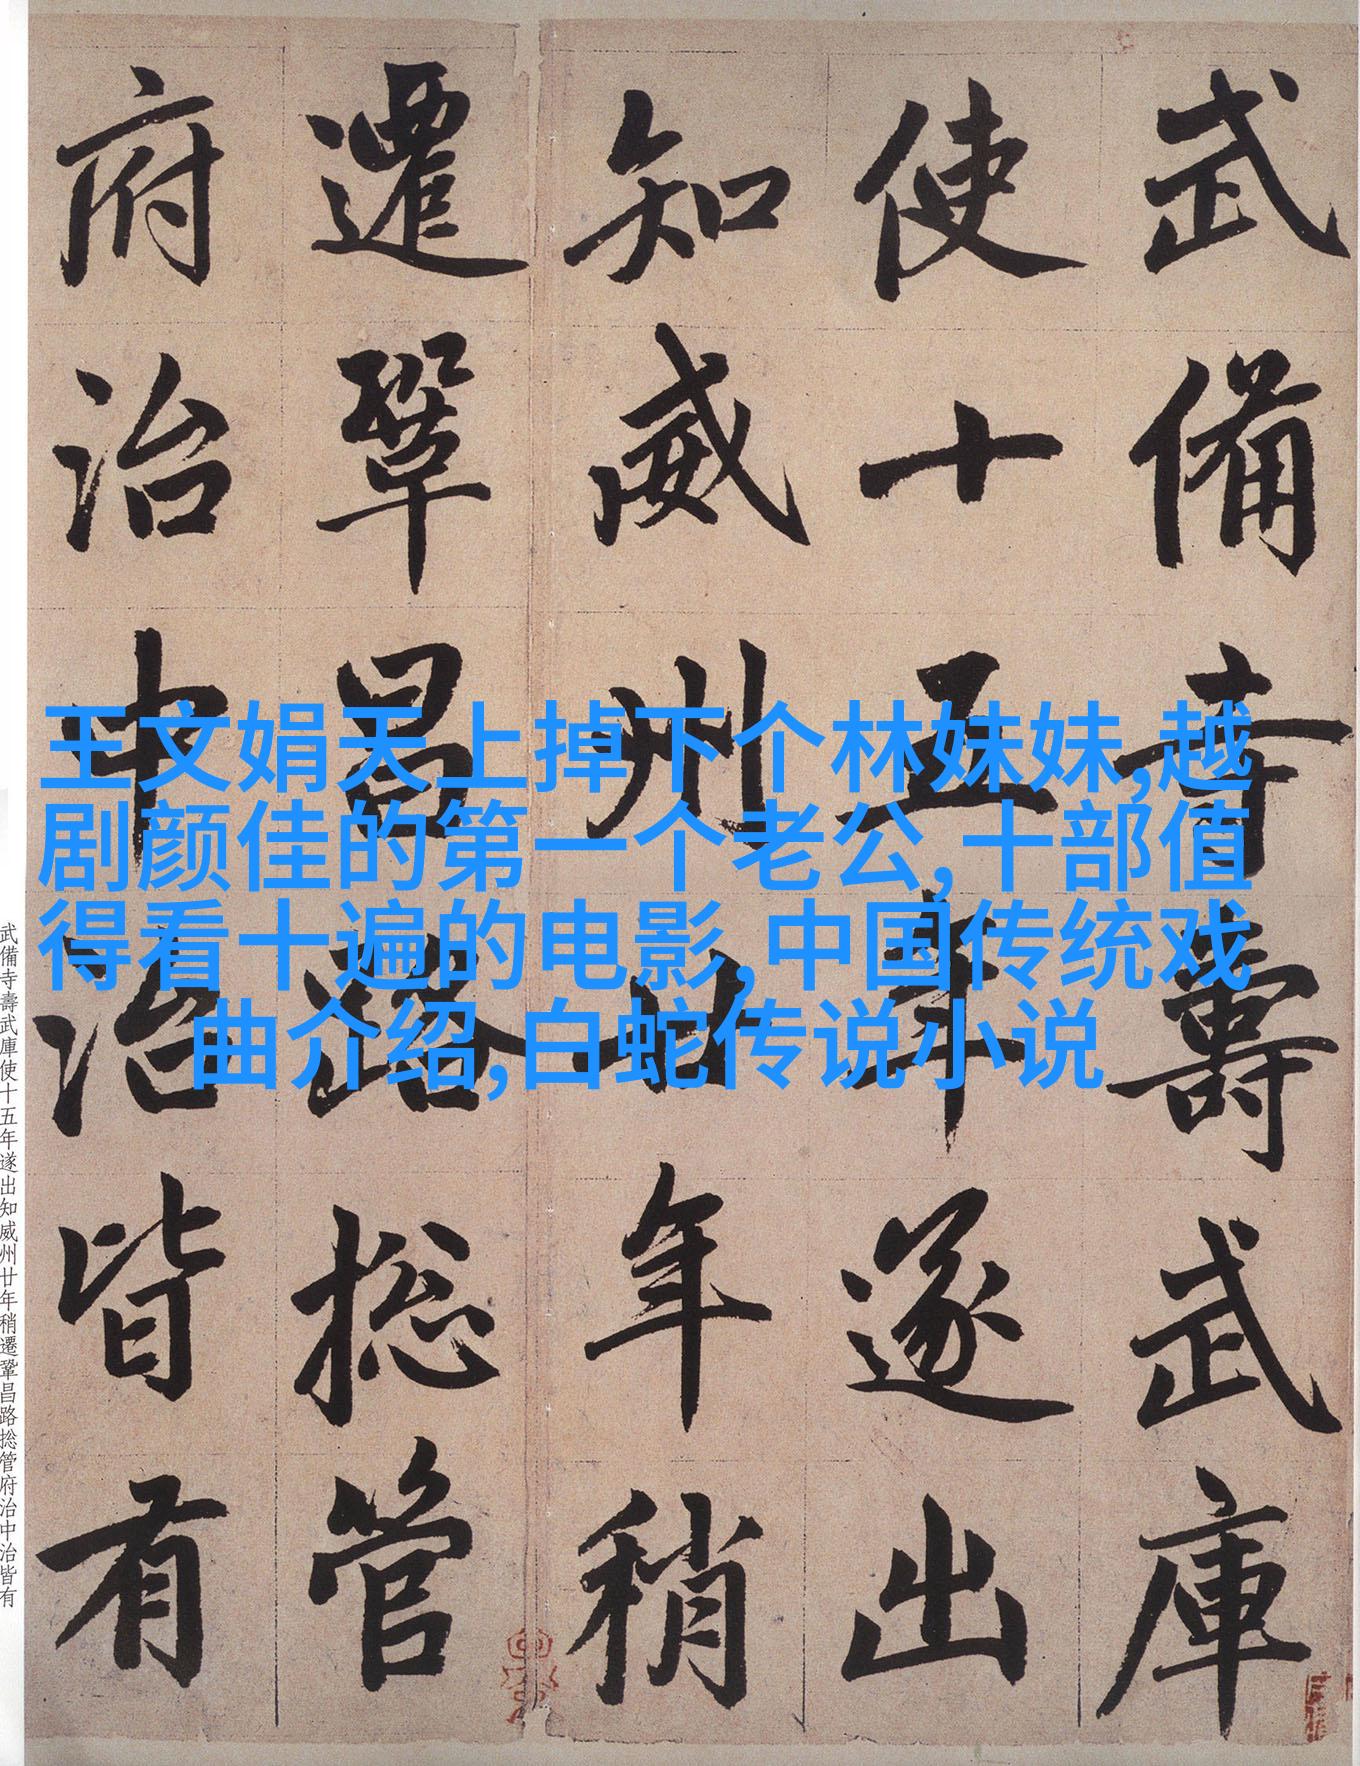 武備寺壽武庫
使十五年遂出
知威州廿年稍
遷鞏昌路捴管
府治中治皆有
王文娟天上掉下个林妹妹,越
剧颜佳的第一个老公,十部值
得看十遍的电影,中国传统戏
曲介绍,白蛇传说小说
武備寺壽武庫使十五年遂出知威州廿年稍遷鞏昌路捴管府治中治皆有